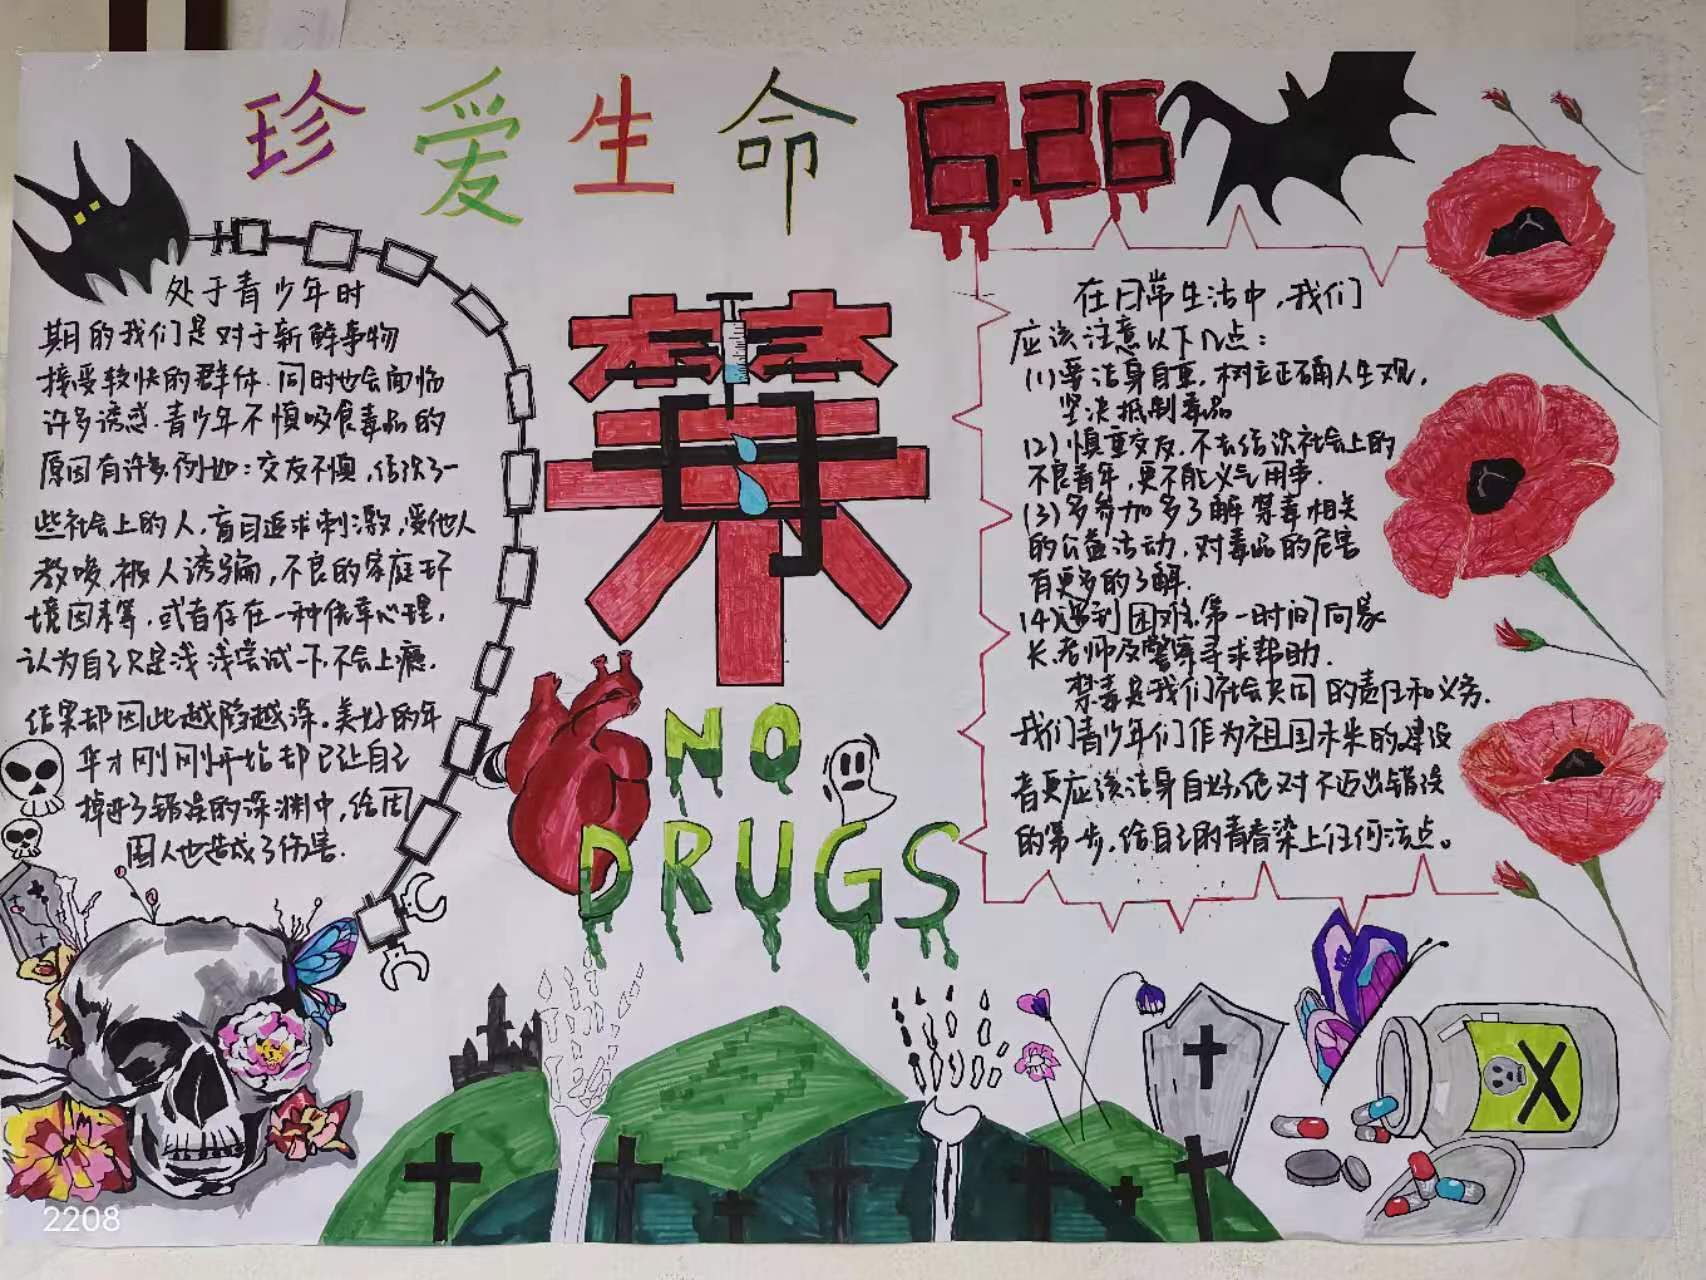 珍爱生命
6.26
处于青少年时
期的我们是对于新鲜事物
接受较快的群体.同时也会面临
许多诱惑.青少年不慎吸食毒品的
原因有许多,例如:交友不慎,结识了一
些社会上的人,盲目追求刺激,受他人
教唆,被人诱骗,不良的家庭环
境因素等.或者存在一种侥幸心理,
认为自己只是浅浅尝试一下,不会上瘾.
结果却因此越陷越深。美好的年
华才刚刚开始却已让自己
掉进了错误的深渊中,给周
围人也造成了伤害.
禁毒
NO
DRUGS
在日常生活中,我们
应该注意以下几点:
(1)要洁身自重,树立正确人生观,
坚决抵制毒品
(2)慎重交友,不去结识社会上的
不良青年,更不能义气用事.
(3)多参加多了解禁毒相关
的公益活动,对毒品的危害
有更多的了解.
(4)遇到困难,第一时间向家
长.老师及警察寻求帮助.
禁毒是我们社会共同的责任和义务.
我们青少年们作为祖国未来的建设
者更应该洁身自好,绝对不迈出错误
的第一步,给自己的青春染上任何污点。
X
2208